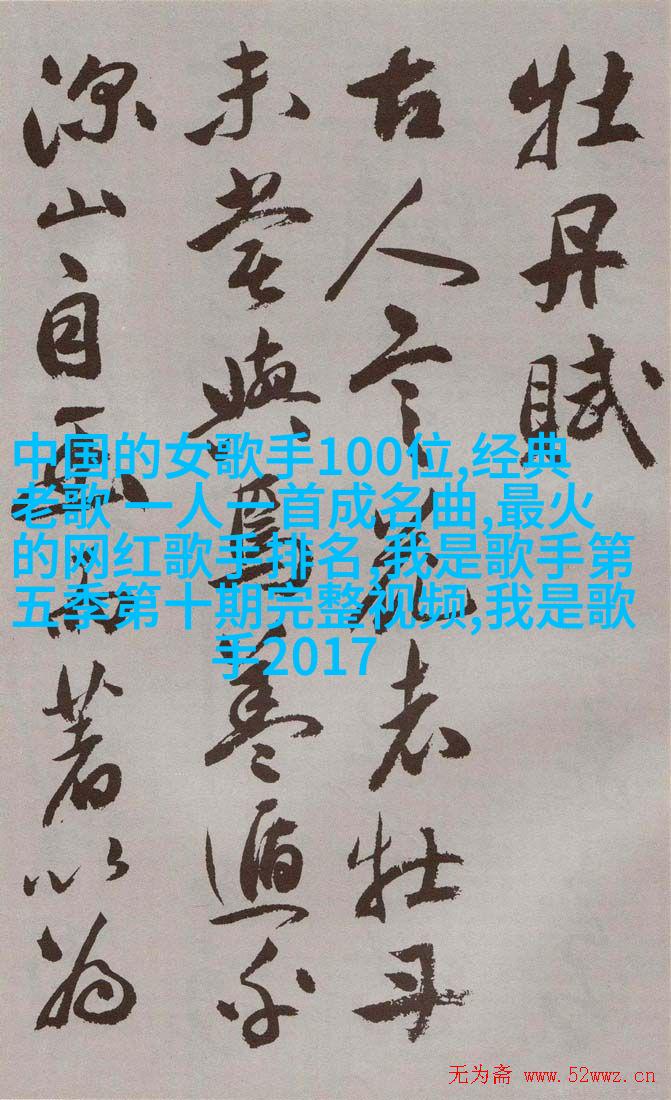 牡丹賦
古人言花者牡丹
未嘗與焉蓋遁
深山自而著以為
中国的女歌手100位,经典
老歌 一人一首成名曲,最火
的网红歌手排名,我是歌手第
五季第十期完整视频,我是歌
手2017
无为斋 www.52wwz.cn